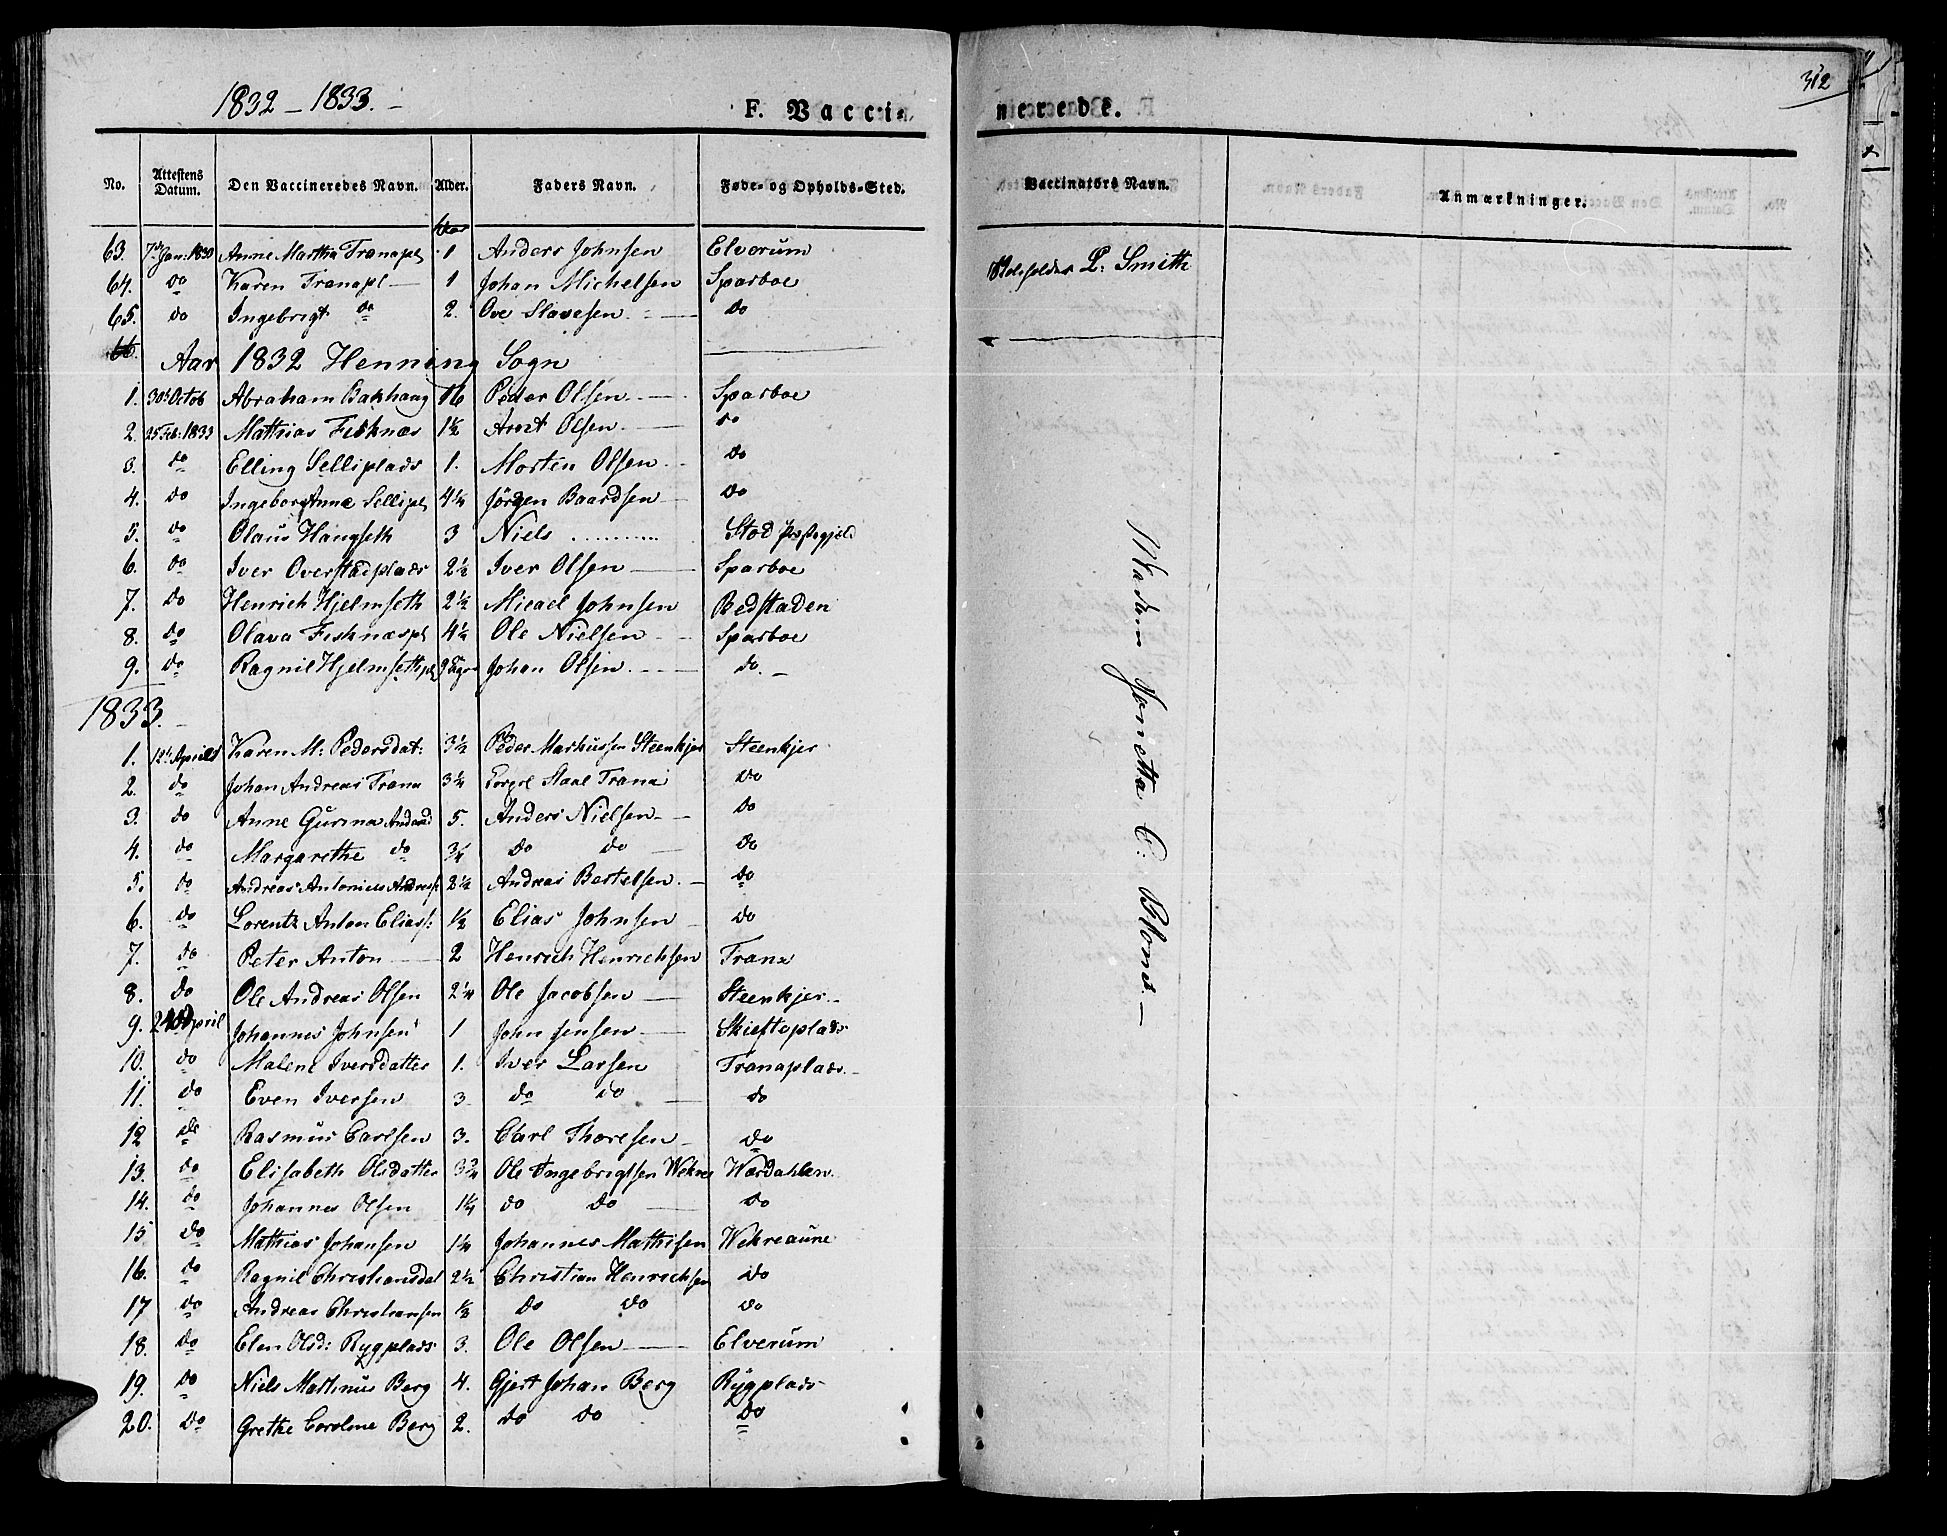 1832 – 1833. –
F. Vacci=
nerede.
312
No.
Attestens Datum.
Den Vaccineredes Navn.
Alder.
Faders Navn.
Føde= og Opholds=Sted.
Vaccinatørs Navn.
Anmærkninger.
63. 7de Jan: 1830 Anne Martha Tranapl 1 Anders Johnsen Elverum
L: Smith
64. do Karen Tranapl – 1 Johan Michelsen Sparboe
65. do Ingebrigt do 2. Ove Slavesen. – do
66.
Aar 1832 Henning Sogn
1. 30te Octob Abraham Bakhaug 16 Peder Olsen. – Sparboe
2. 25 Feb: 1833 Mathias Fisknæs 1½ Arnt Olsen. – do
3. do Elling Selliplads 1. Morten Olsen – do
4. do Ingebor Anna Sellipl 4¼ Jørgen Baardsen – do
5. do Olaus Haugseth 3 Niels .......... Stod Præstegjeld
6. do Iver Overstadplads 2½ Iver Olsen – Sparboe
7. do Henrich Hjelmseth 2½ Micael Johnsen Bedstaden
8. do Olava Fisknæspl 4½ Ole Nielsen – Sparboe
9. do Ragnil Hjelmsethpl Johan Olsen. – do. –
1833. –
1. 12te Aprill Karen M: Pedersdat: 3½ Peder Markussen Steenkjer Steenkjer
2. do Johan Andreas Trana 3¼ Staal Trana do
3. do Anne Gurina 5. Anders Nielsen – do
4. do Margarethe do ¾ do do – do
5. do Andreas Antonius 2½ Andreas Bertelsen. – do
6. do Lorentz Anton Eliass: ½ Elias Johnsen – do
7. do Peter Anton – 2 Henrich Henrichsen Trana
8. do Ole Andreas Olsen 2¼ Ole Jacobsen – Steenkjer –
9. April Johannes Johnsen 1 John Jensen – Skiefteplads
10. do Malene Iversdatter 1. Iver Larsen Tranaplads –
11. do Even Iversen 3 do do – do
12 do Rasmus Carlsen 3. Carl Thoresen – do
13. do Elisabeth Olsdatter 3¾ Ole Ingebrigtsen Wekre Wærdahlen.
14. do Johannes Olsen 1¼ do do – do
15 do Mathias Johansen 1¼ Johannes Mathisen Wekreaune
16. do Ragnil Christiansdat 2½ Christian Henrichsen do
17 do Andreas Christiansen ½ do do do
18. do Elen Olsd: Rygplads 3. Ole Olsen – Elverum
19. do Niels Martinus Berg 4. Gjert Johan Berg Rygplads
20. do Grethe Caroline Berg 2. do do do
Madam Jonetta C: Blones. –